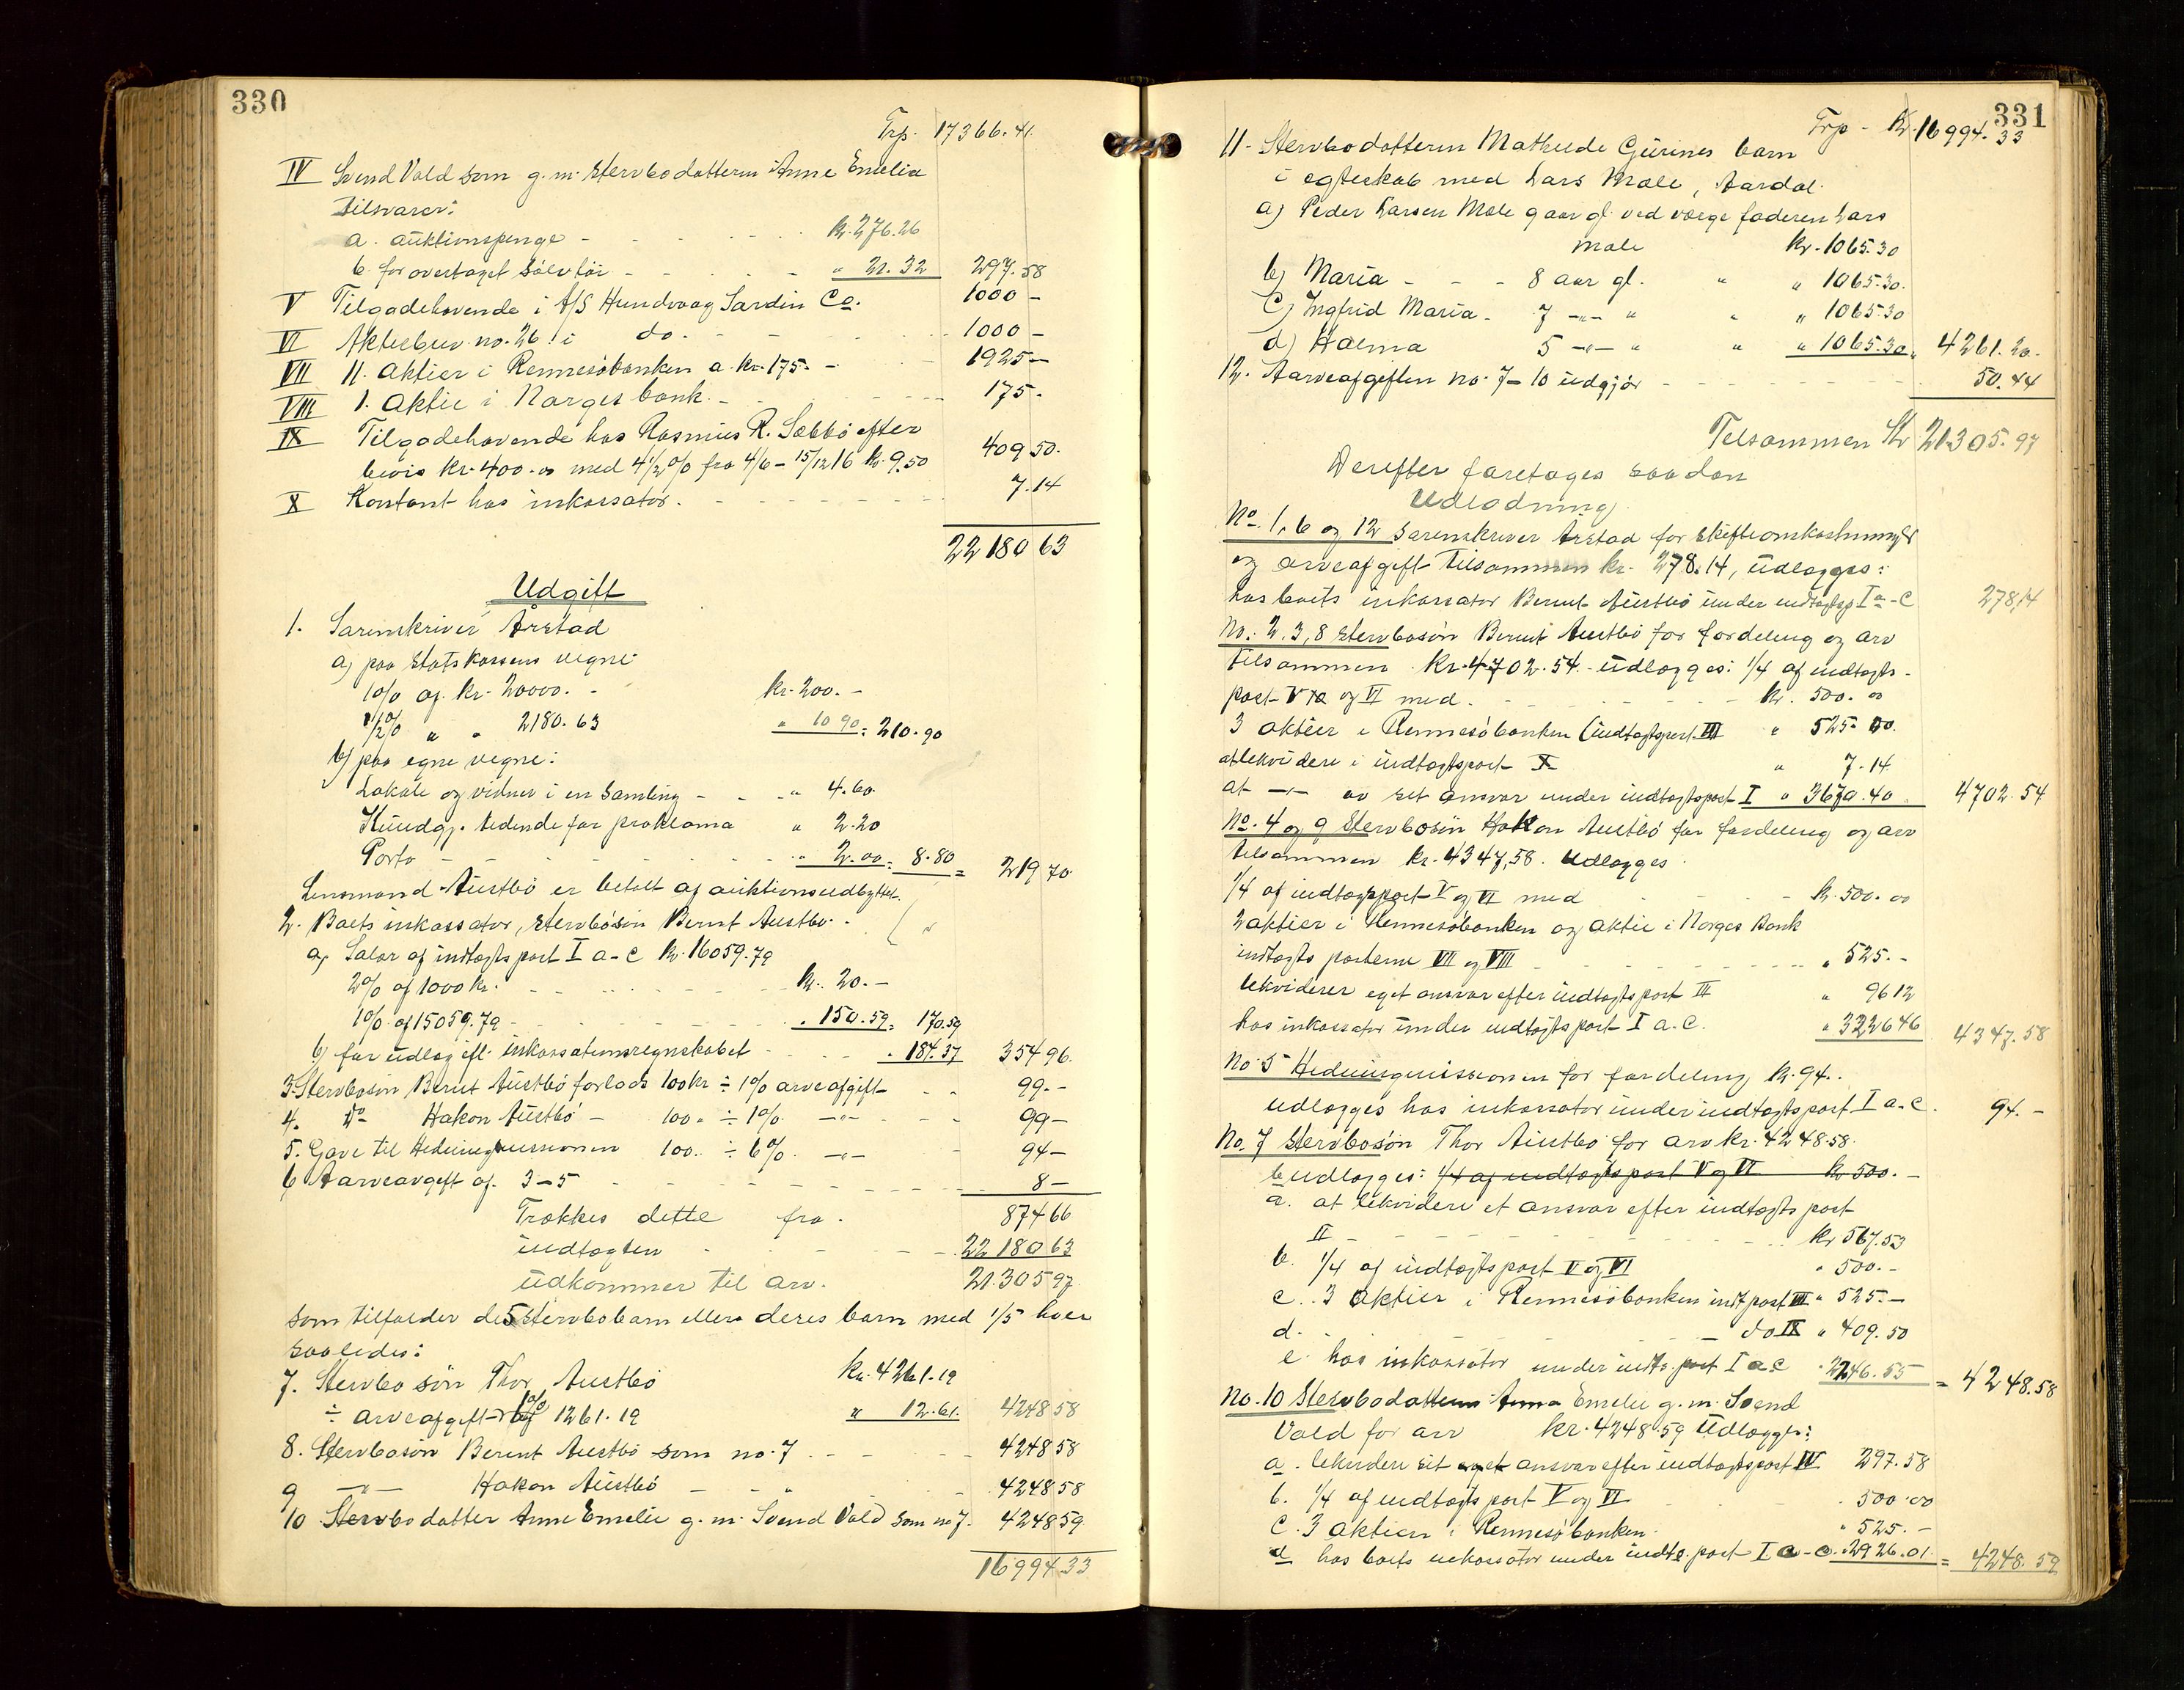 330
Trp. 17366.41
IV Svend Vold som g.m. stervbodatteren Anne Emelia
tilsvarer:
a. auktionspenge - - - - - - kr. 276.26
b. for overtaget sølvtøi - - - - - " 21.32 297.58
V Tilgodehavende i A/S Hundvaag Sardin Co. 1000 -
VI Aktiebrev no. 26 i do. - - - - 1000 -
VII 11. aktier i Rennesøbanken a. kr. 175. - 1925 -
VIII 1. aktie i Norges bank. - - - - 175.
IX Tilgodehavende hos Rasmus R. Sæbbø efter
bevis kr. 400.00 med 4 1/2 % fra 4/6 - 15/12 16 kr. 9.50 409 50.
X Kontant hos inkassator. - - - - - 7.14
22180 63
Udgift
1. Sorenskriver Årstad
a) paa Statskassens vegne:
1 0/0 af. kr. 20000. - kr. 200. -
1/2 % " " 2180.63 " 10 90 = 210.90
b) paa egne vegne:
Lokale og vidner i en samling - - - " 4.60
Kundgj. tidende for proklama " 2.20
Porto - - - - - - " 2.00 = 8.80 = 219 70.
Lensmand Austbø er betalt af auktionsudbyttet.
2. Boets inkassator, stervbosøn Bernt Austbø.
a, Salær af indtægtspost I a-c kr. 16059.79
2% af 1000 kr. - - - - - kr. 20. -
1% af 15059.79 - - - - - . 150.59 = 170.59
b) for udlæg efl. inkassationsregnskabet - - - . 184.37 354 96.
3. Stervbosøn Bernt Austbø forlods 100 kr ÷ 1% arveafgift - - 99. -
4. Do Hakon Austbø - 100 " ÷ 1% -"- - - 99 -
5. Gave til Hedningmissionen 100. ÷ 6% -"- - 94 -
6 Aarveavgift af. 3-5 - - - - - 8 -
Trækkes dette fra. 874 66
indtægten - - - - 22180 63
udkommer til arv. 21.305 97.
som tilfalder de 5 stervbobarn eller deres barn med 1/5 hver
saaledes:
7. Stervbosøn Thor Austbø kr. 4261.19
÷ arveafgift 1% af 1261.19 " 12.61. 4248 58
8. Stervbosøn Bernt Austbø som no. 7 - - - 4248 58
9 -"- Hakon Austbø - - " - - 4248 58
10. Stervbodatter Anne Emelie g.m. Svend Vold som no 7. 4248 59
16994 33
331
Trp - Kr. 16994.33
11- Stervbodatteren Mathilde Gurines barn
i egteskab med Lars Mæle, Aardal.
a) Peder Larsen Mæle 9 aar gl. ved værge faderen Lars
Mæle kr. 1065.30
b) Maria - - - 8 aar gl. " " 1065.30.
c) Ingfrid Maria - 7 -"- " " " 1065.30
d) Halma 5 -"- " " " 1065.30 = 4261.20.
12. Aarveafgiften no. 7-10 udgjør - - - - - 50.44
Tilsammen Kr 21305.97
Derefter foretages saadan
Udlodning
No. 1, 6 og 12 Sorenskriver Årstad for skifteomkostninger
og arveafgift tilsammen kr. 278.14, udlægges:
hos boets inkassator Bernt Austbø under indtægtsp. I a-c 278,14
No. 2. 3, 8 stervbosøn Bernt Austbø for fordeling og arv
tilsammen kr. 4702.54 - udlægges: 1/4 af indtægts-
post V og VI med. - - - - - kr. 500.00
3 aktier i Rennesøbanken (indtægtspost VII " 525.00.
at lekvidere i indtægtspost X " 7.14
at -"- av sit ansvar under indtægtspost I " 3670.40. 4702.54
No. 4 og 9 Stervbosøn Hakon Austbø for fordeling og arv
tilsammen kr. 4347,58. Udlægges
1/4 af indtægtspost V og VI med - - - kr. 500.00
2 aktier i Rennesøbanken og aktie i Norges Bank
indtægts posterne VII og VIII - - - - - " 525. -
lekviderer eget ansvar efter indtægtspost III " 96 12
hos inkassator under indtægtspost I a.c. " 3226 46 4347.58
No. 5 Hedningmissionen for fordeling kr. 94.
udlægges hos inkassator under indtægtspost I a-c. 94. -
No. 7 Stervbosøn Thor Austbø for arv kr. 4248.58.
udlægges: 1/4 af indtægtspost V og VI kr 500. -
a. at lekvidere et ansvar efter indtægts post
II - - - - - - kr 567.53
b. 1/4 af indtægtspost V og VI " 500. -
c. 3 aktier i Rennesøbanken indt post VII " 525. -
d. - do IX " 409.50
e. hos inkassator under indts. post I a-c . 2246.55 = 4248.58
No. 10 Stervbodatteren Anna Emelie g.m. Svend
Vold for arv kr. 4248.59 Udlægges:
a. lekvidere sit eget ansvar efter indtægtspost IV 297.58
b. 1/4 af indtægts post V og VI - - . 500.00
c. 3 aktier i Rennesøbanken. " 525. -
d hos boets inkassator under indts. post I a-c. 2926.01. = 4248.59